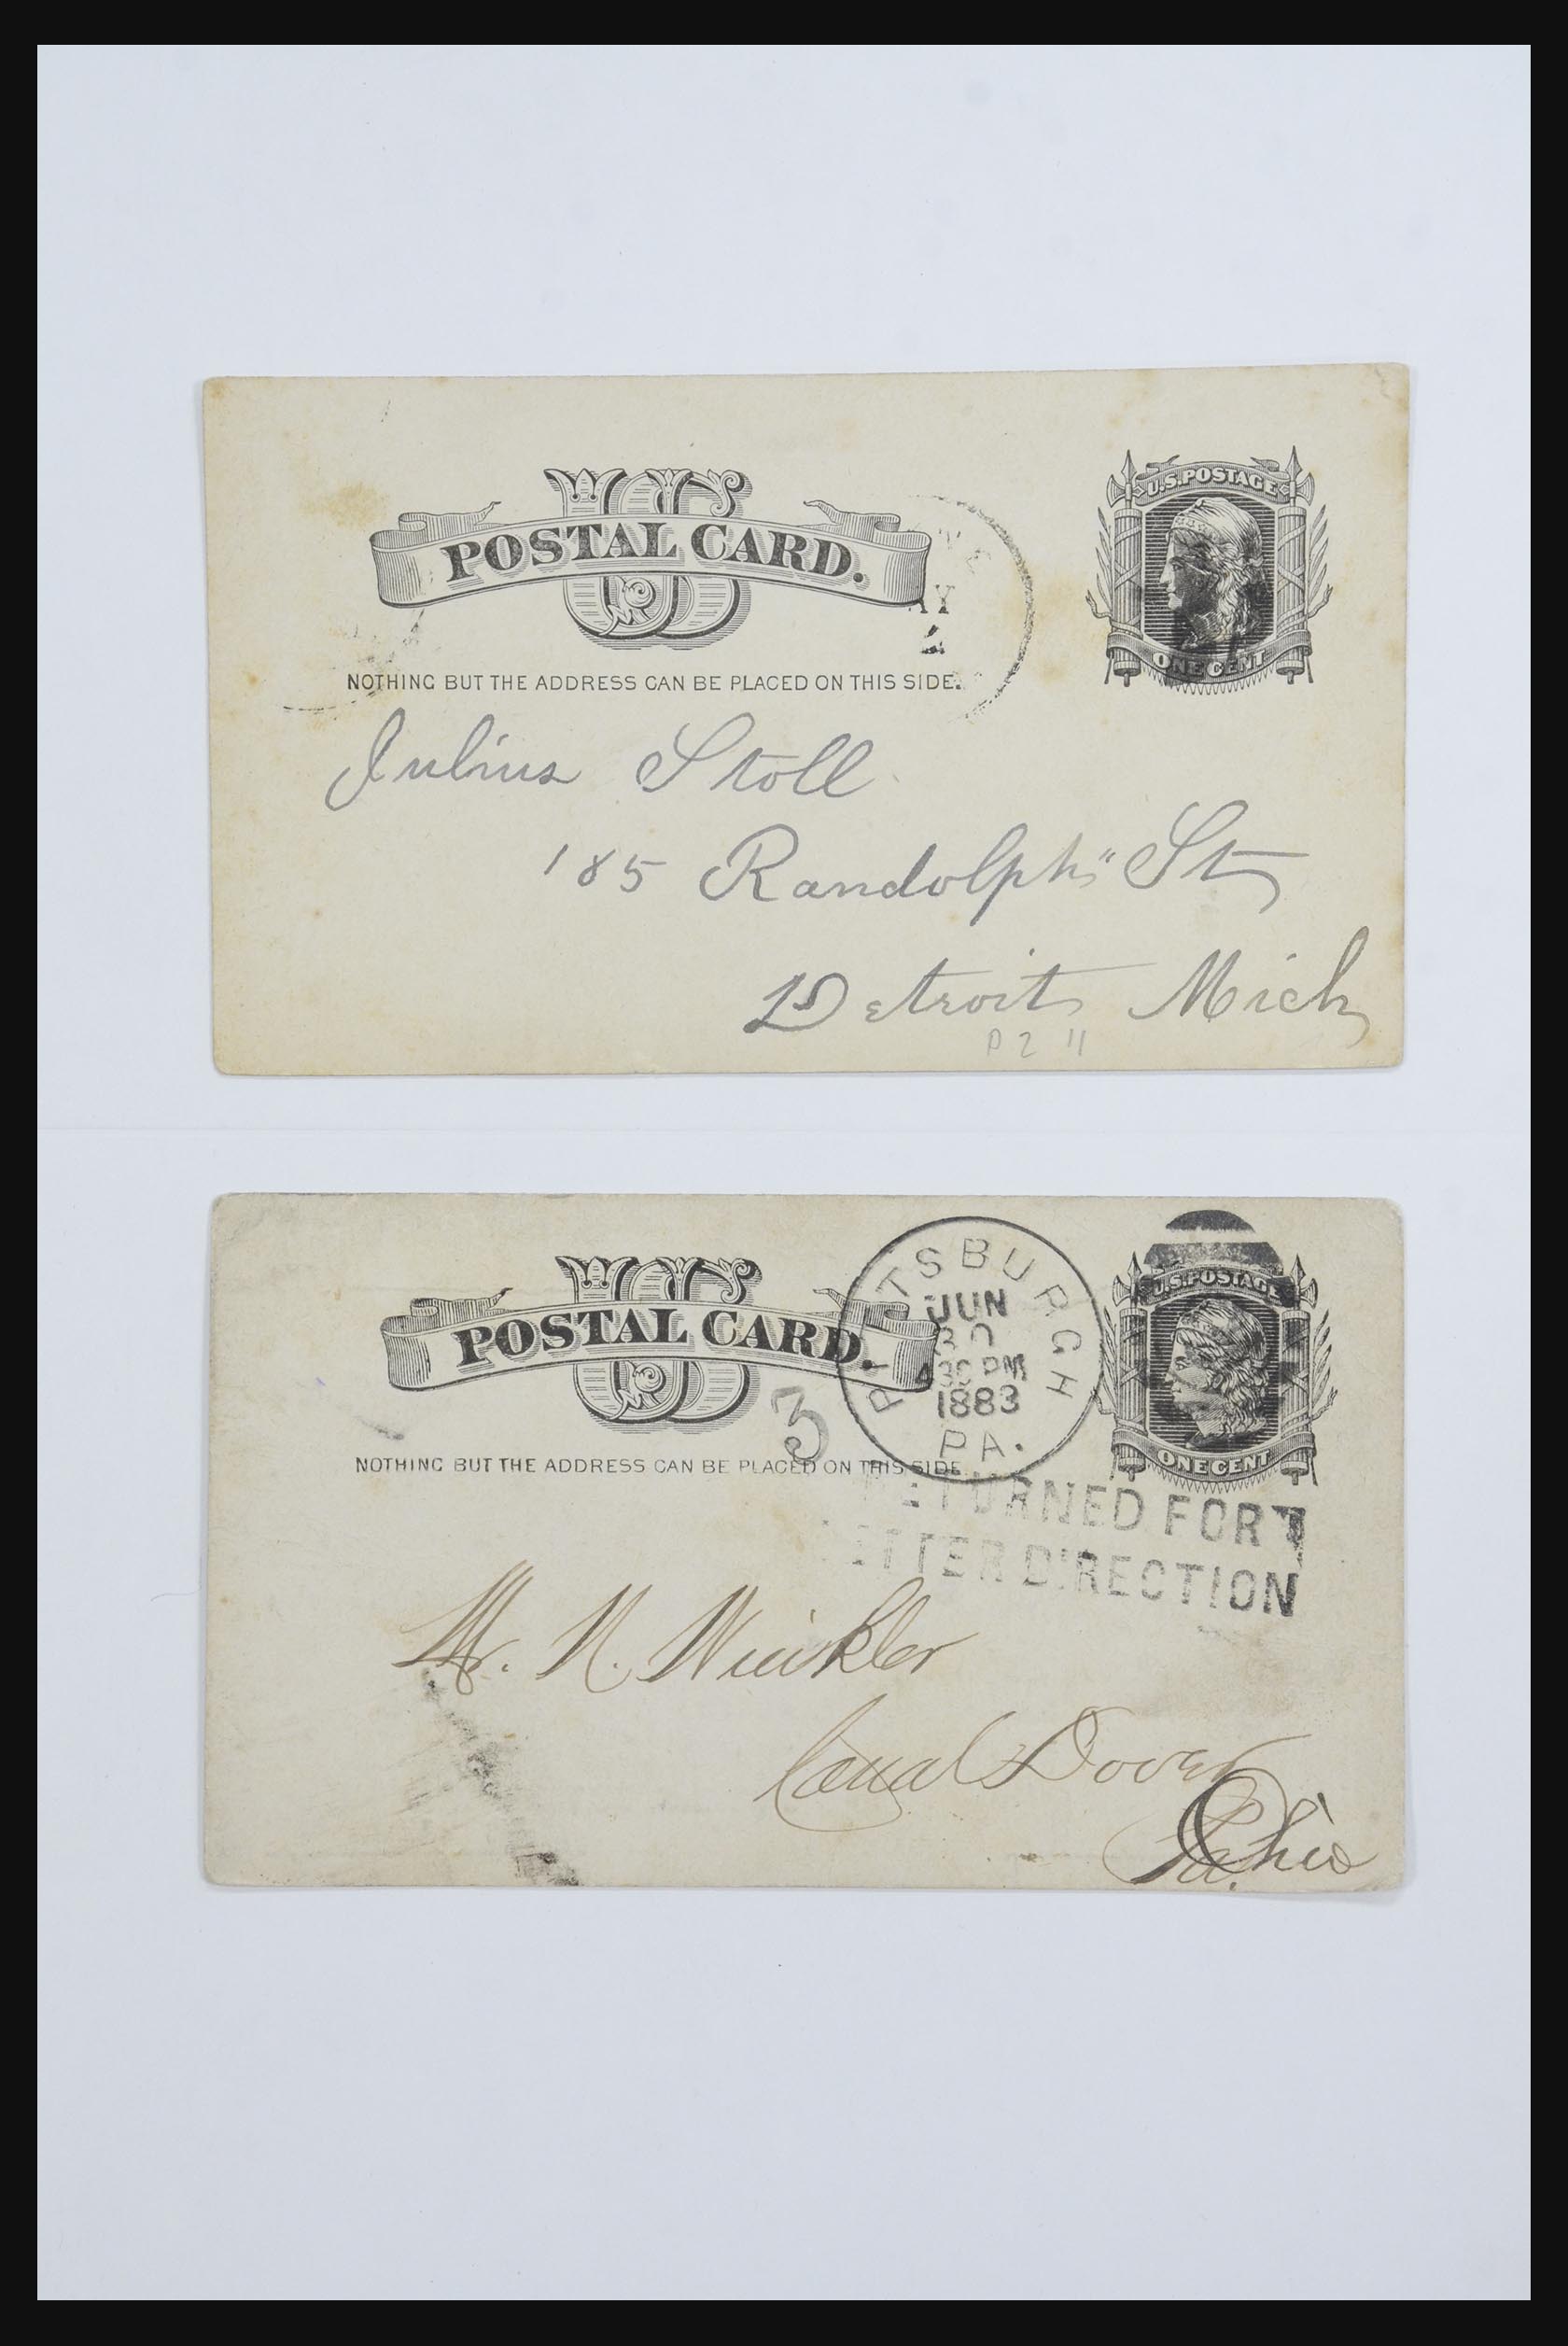 US
POSTAL CARD.
U.S. POSTAGE
ONE CENT
AY
NOTHING BUT THE ADDRESS CAN BE PLACED ON THIS SIDE.
Julius Stoll
185 Randolph St
Detroit Mich
P2 11
US
POSTAL CARD.
PITTSBURGH
JUN
30
430 PM
1883
PA.
U.S. POSTAGE
ONE CENT
3
NOTHING BUT THE ADDRESS CAN BE PLACED ON THIS SIDE
RETURNED FOR
ETTER DIRECTION
Mr. N. Winkler
Canal Dover
Ohio